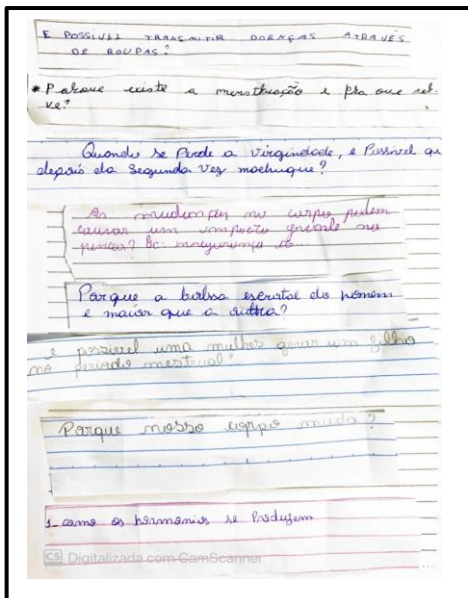 E POSSIVEL TRANSMITIR DOENÇAS ATRAVÉS
DE ROUPAS?
* Porque existe a menstruação e pra que ser-
ve?
Quando se Perde a virgindade, e Possivel qu
depois da Segunda vez machuque?
As mudanças no corpo podem
causar um impacto grande na
pessoa?
Porque a bolsa escrotal do homem
e maior que a outra?
é possivel uma mulher gerar um filho
no periodo mestrual?
Porque nosso corpo muda?
1- como os hormonios se Produzem
CS Digitalizada com CamScanner